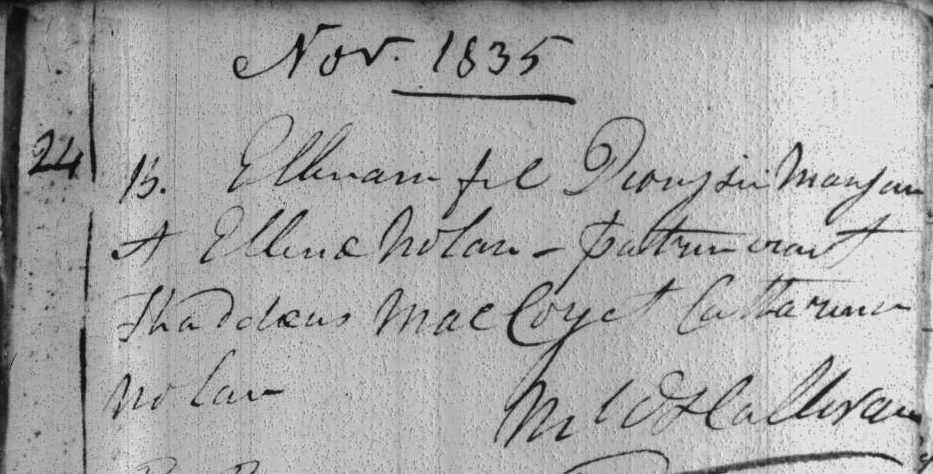 Nov. 1835
24 B. Ellenam fil Dionysii Mangan
et Ellenæ Nolan - Patrini erant
Thaddæus Mac Coy et Catharina
Nolan